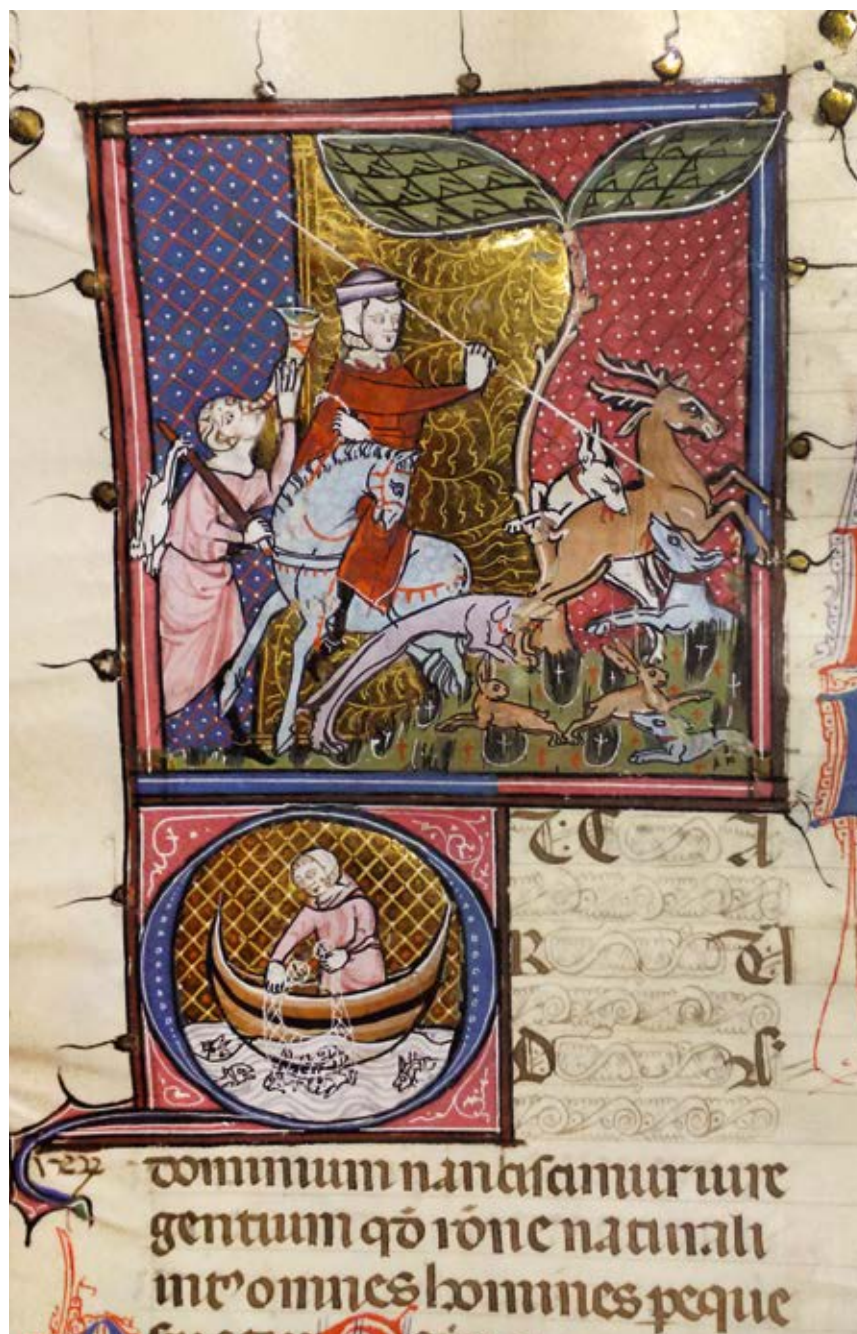 T C A
R TI
D
dominium nanciscimur iure
gentium qđ rōne naturali
int᾽ omnes homines ꝑeque